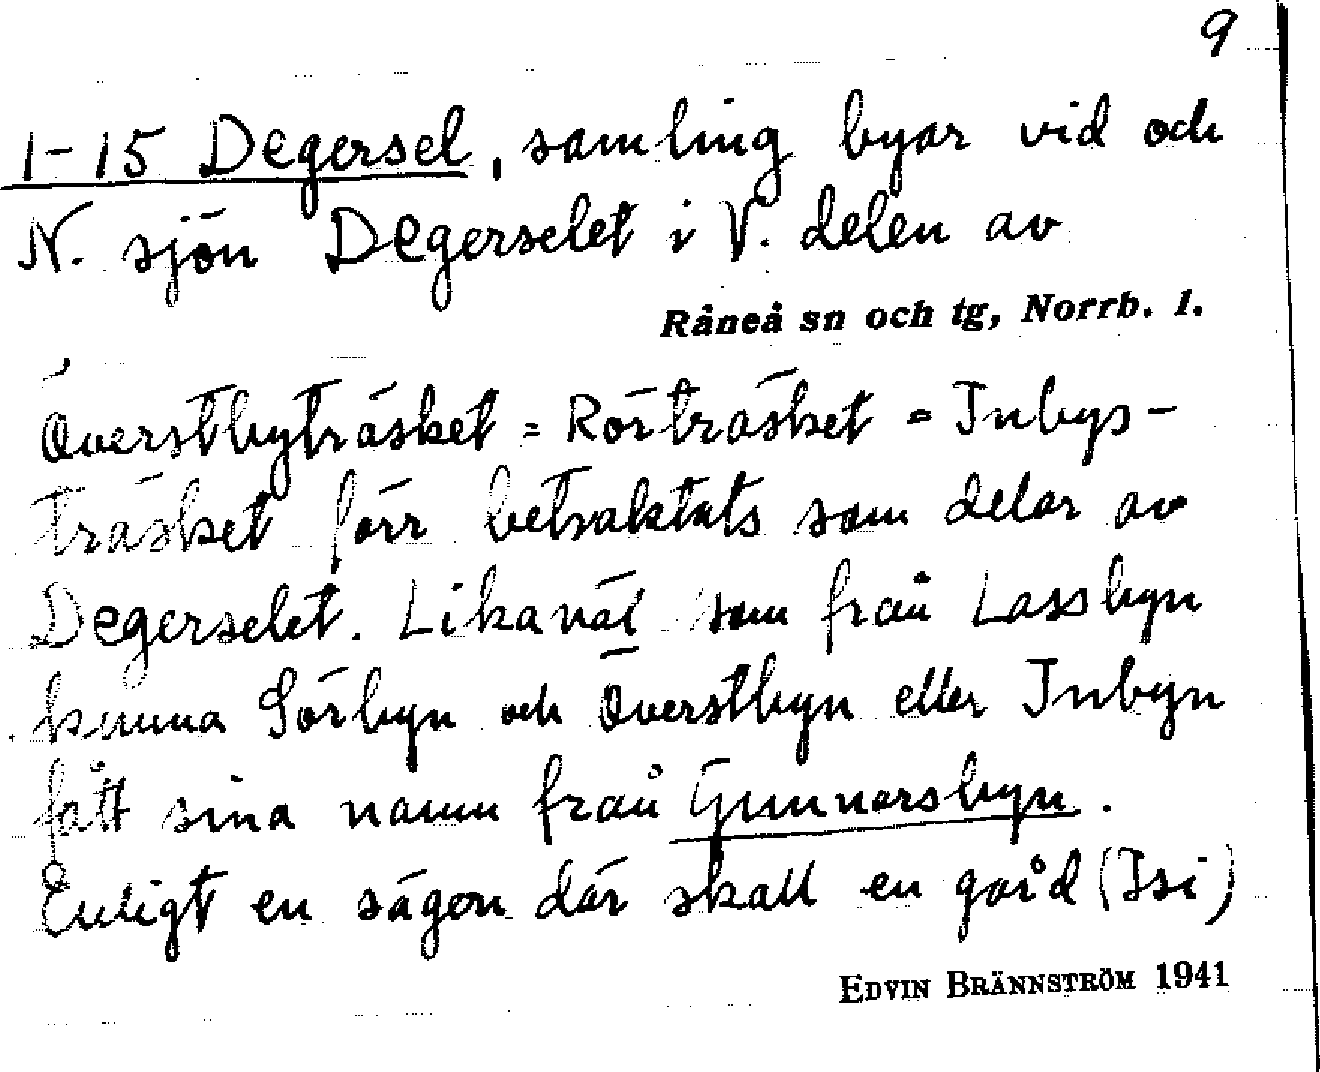 9
1-15 Degersel, samling byar vid och
N. sjön Degerselet i V. delen av
Råneå sn och tg, Norrb. l.
Överstbyträsket = Rörträsket = Inbys-
träsket förr betraktats som delar av
Degerselet. Likaväl som från Lassbyn
kunna Sörbyn och Överstbyn eller Inbyn
fått sina namn från Gunnarsbyn.
Enligt en sägen där skall en gård (Isi)
EDVIN BRÄNNSTRÖM 1941